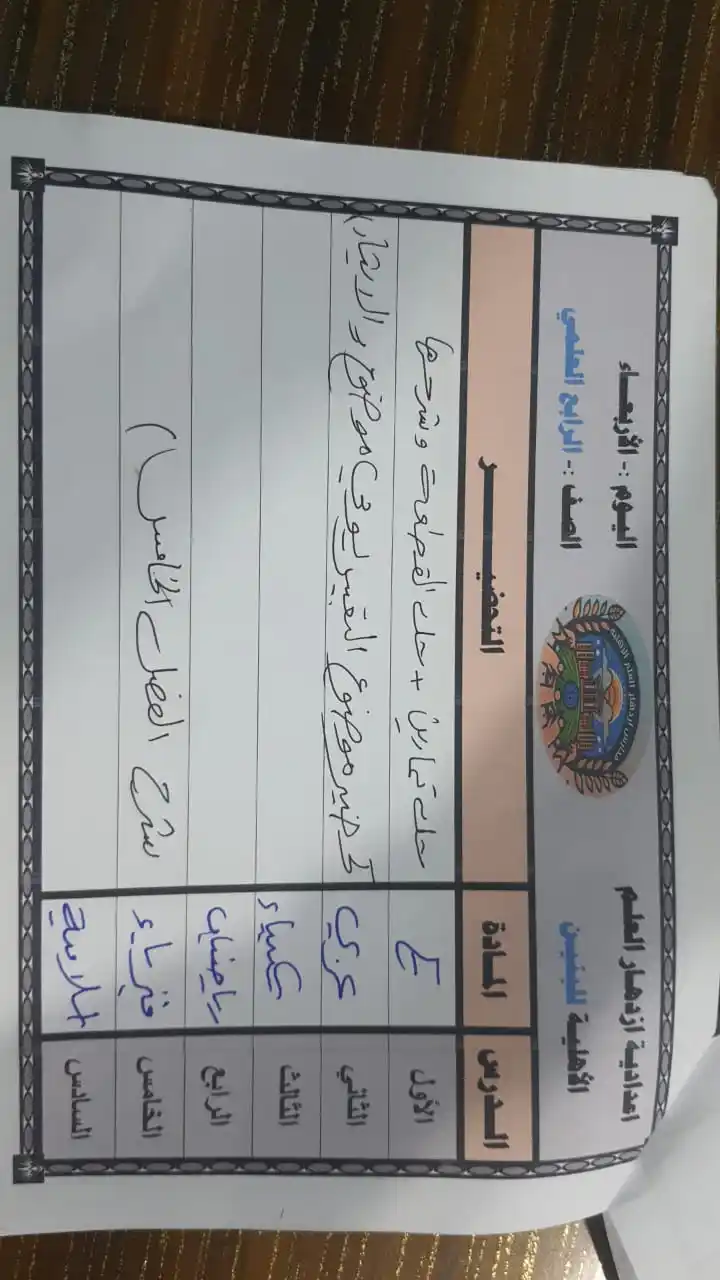 اعدادية ازدهار العلم
الأهلية للبنين
اليوم :- الأربعاء
الصف :- الرابع العلمي
الدرس المادة التحضير
الأول ع حل تمارين + حل القطعة وشرحها
الثاني عربي تحضير موضوع التعبير يوفي موضوع والايجاز
الثالث كيمياء
الرابع رياضيات
الخامس فيزياء شرح الفصل الخامس
السادس